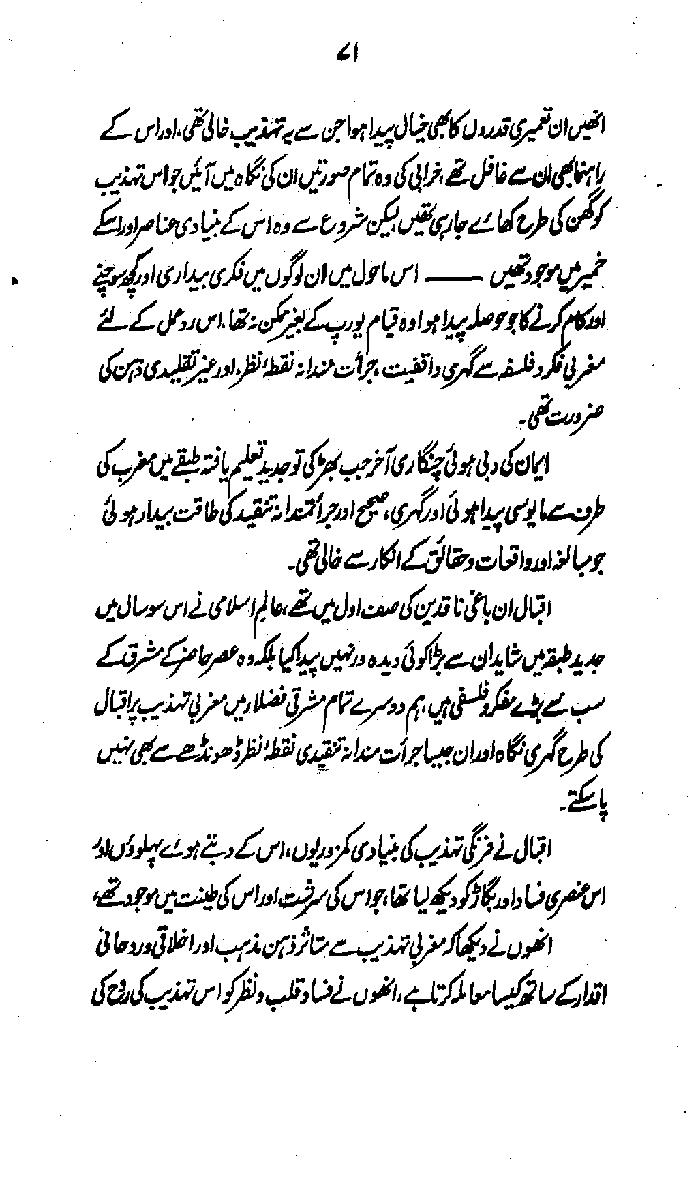 ۷۱
انھیں ان تعمیری قدروں کا بھی خیال پیدا ہوا جن سے یہ تہذیب خالی تھی، اور اس کے
راہنما بھی ان سے غافل تھے، خرابی کی وہ تمام صورتیں ان کی نگاہ میں آئیں جو اس تہذیب
کو گھن کی طرح کھائے جا رہی تھیں، لیکن شروع سے وہ اس کے بنیادی عناصر اور اسکے
خمیر میں موجود تھیں ـــــــ اس ماحول میں ان لوگوں میں فکری بیداری اور کچھ سوچنے
اور کام کرنے کا جو حوصلہ پیدا ہوا وہ قیام یورپ کے بغیر ممکن نہ تھا، اس ردعمل کے لئے
مغربی فکر و فلسفہ سے گہری واقفیت، جرأت مندانہ نقطۂ نظر، اور غیر تقلیدی ذہن کی
ضرورت تھی۔
ایمان کی دبی ہوئی چنگاری آخر جب بھڑکی تو جدید تعلیم یافتہ طبقے میں مغرب کی
طرف سے مایوسی پیدا ہوئی اور گہری، صحیح اور جرأتمندانہ تنقید کی طاقت بیدار ہوئی
جو مبالغہ اور واقعات و حقائق کے انکار سے خالی تھی۔
اقبال ان باغی ناقدین کی صف اول میں تھے، عالم اسلامی نے اس سو سال میں
جدید طبقہ میں شاید ان سے بڑا کوئی دیدہ ور نہیں پیدا کیا بلکہ وہ عصر حاضر کے مشرق کے
سب سے بڑے مفکر و فلسفی ہیں، ہم دوسرے تمام مشرقی فضلاء میں مغربی تہذیب پر اقبال
کی طرح گہری نگاہ اور ان جیسا جرأت مندانہ تنقیدی نقطۂ نظر ڈھونڈھے سے بھی نہیں
پا سکتے۔
اقبال نے فرنگی تہذیب کی بنیادی کمزوریوں، اس کے دبتے ہوئے پہلوؤں اور
اس عنصری فساد اور بگاڑ کو دیکھ لیا تھا، جو اس کی سرشت اور اس کی طینت میں موجود تھے،
انھوں نے دیکھا کہ مغربی تہذیب سے متاثر ذہن مذہب اور اخلاقی و روحانی
اقدار کے ساتھ کیسا معاملہ کرتا ہے، انھوں نے فساد قلب و نظر کو اس تہذیب کی روح کی